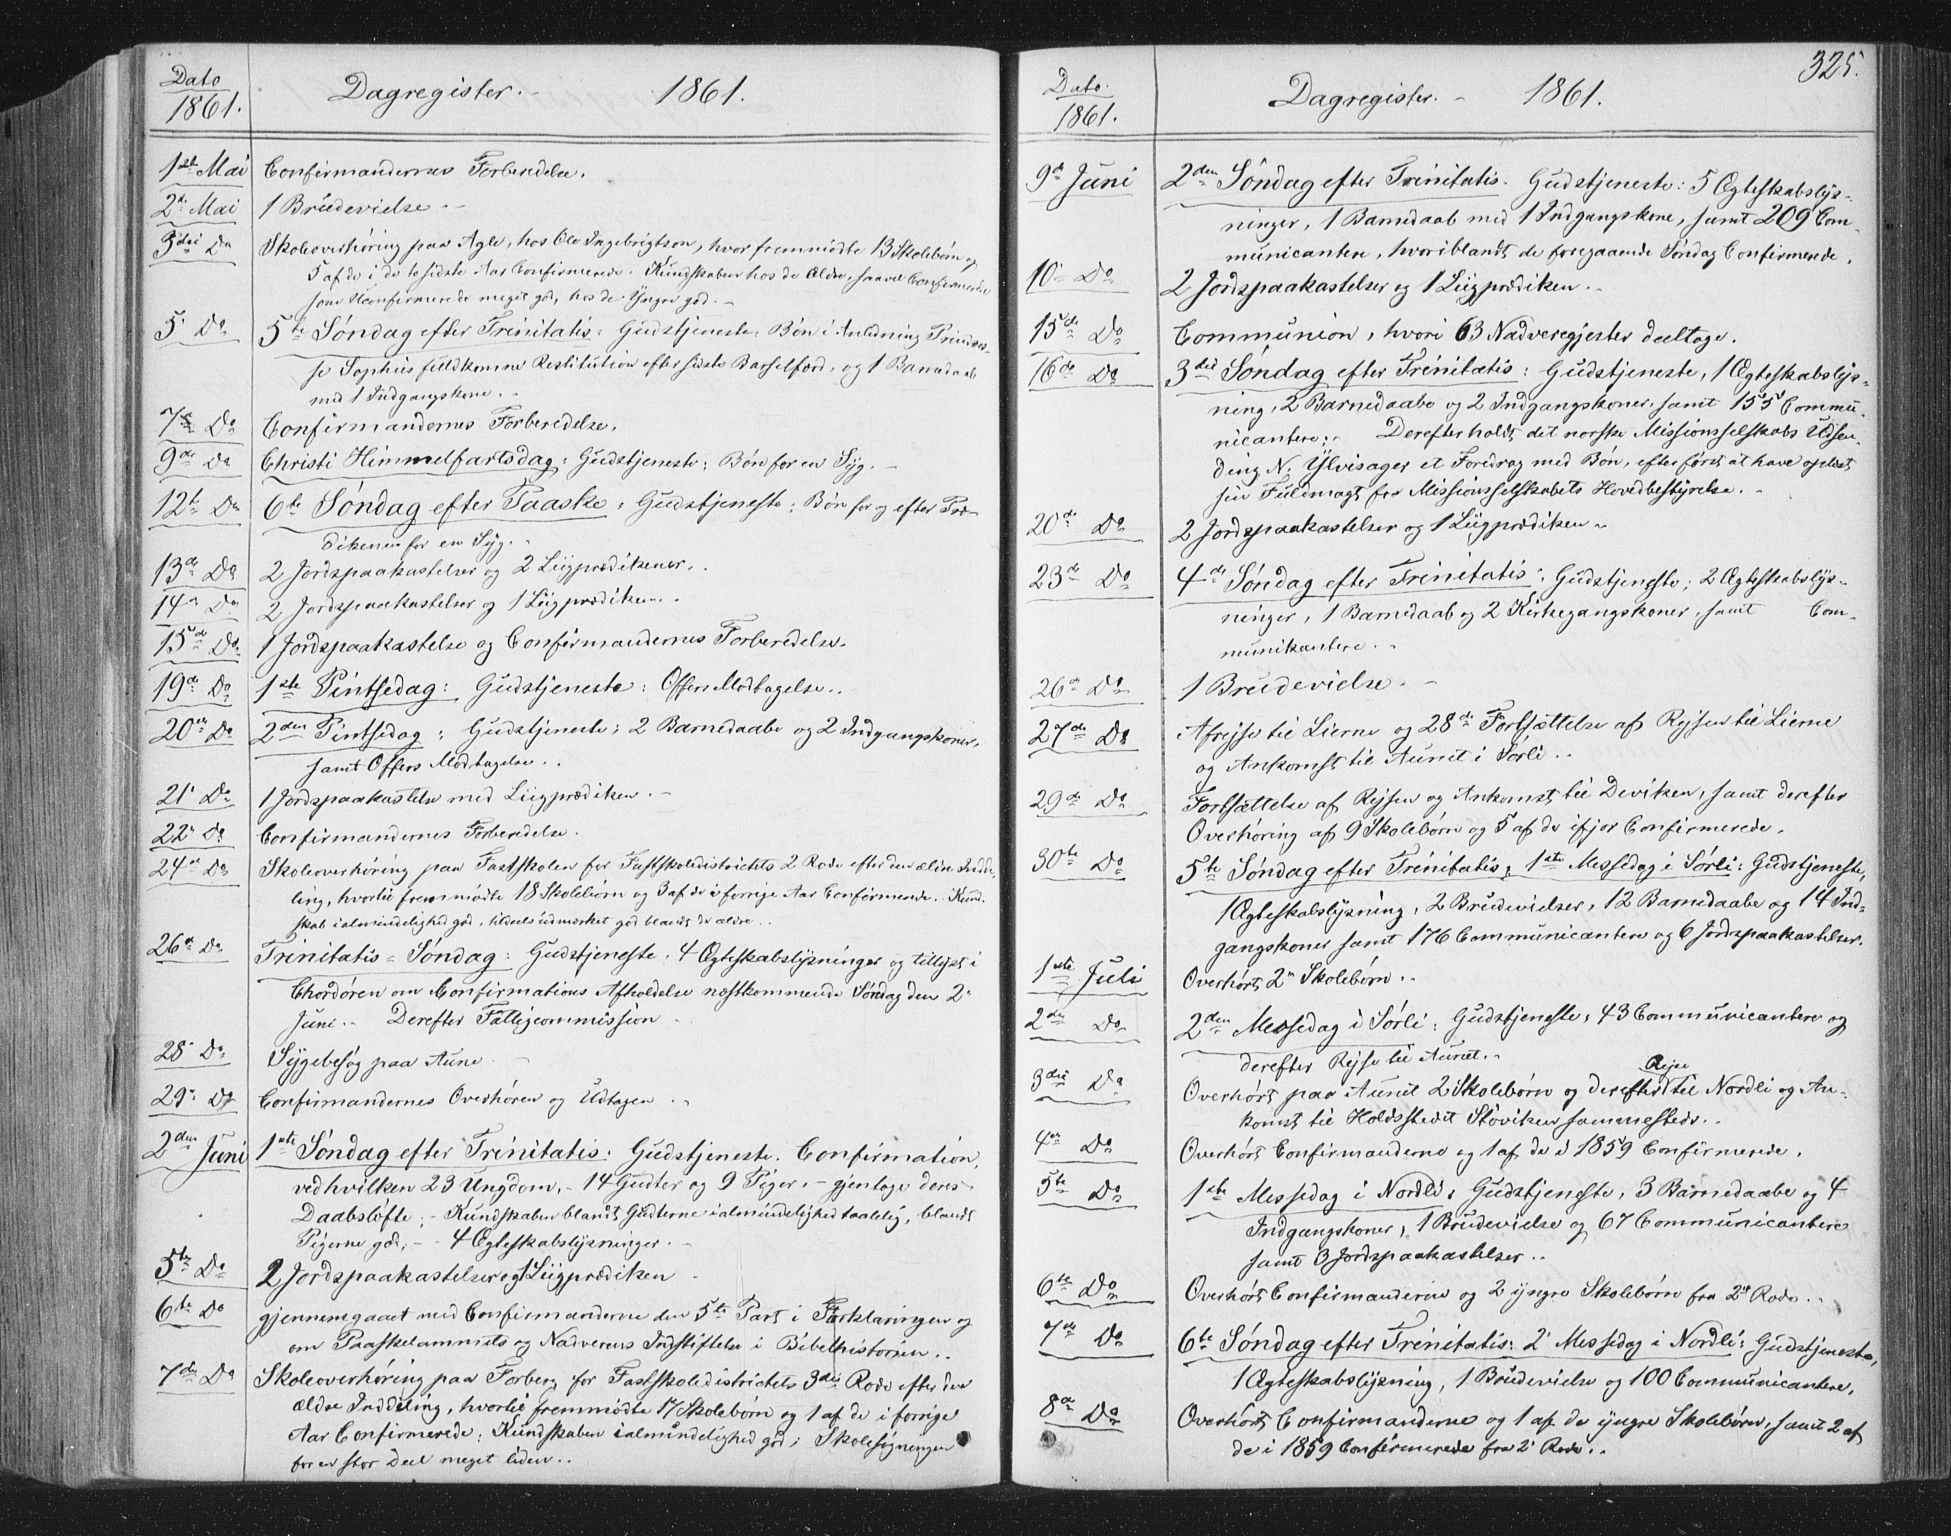 Dato
1861.
Dagregister. - 1861.
1ste Mai Confirmandernes Forberedelse.
2d Mai 1 Brudevielse.-
3die Do Skoleoverhøring paa Agle, hos Ole Ingebrigtson, hvor fremmødte 13 Skolebørn og
5 af de i de to sidste Aar Confirmerede. Kundskaben hos de Ældre, saavel Confirmerede
som Uconfirmerede meget god, hos de Yngre god.-
5' Do 5te Søndag efter Trinitatis: Gudstjeneste: Bøn i Anledning Prindses-
se Sophies fuldkomne Restitution efter sidste Barselfærd, og 1 Barnedaab
med 1 Indgangskone.
7de Do Confirmandernes Forberedelse.
9de Do Christi Himmelfartsdag: Gudstjeneste: Bøn for en Syg.-
12te Do 6te Søndag efter Paaske: Gudstjeneste: Bøn for og efter Præ-
dikenen for en Syg.-
13de Do 2 Jordspaakastelser og 2 Liigprædikener.
14de Do 2 Jordspaakastelser og 1 Liigprædiken.
15de Do 1 Jordspaakastelse og Confirmandernes Forberedelse.
19de Do 1ste Pintsedag: Gudstjeneste: Offers Modtagelse..
20de Do 2den Pintsedag: Gudstjeneste: 2 Barnedaabe og 2 Indgangskoner,
samt Offers Modtagelse..
21' Do 1 Jordspaakastelse med Liigprædiken.-
22' Do Confirmandernes Forberedelse.
24de Do Skoleoverhøring paa Fastskolen for Fastskoledistrictets 2 Rode efter den ældre Indde-
ling, hvortil fremmødte 18 Skolebørn og 3 af de i forrige Aar Confirmerede. Kund-
skab i almindelighed god, tildeels udmærket god blandt de ældre..
26de Do Trinitatis-Søndag: Gudstjeneste: 4 Ægteskabslysninger og tillyst i
Chordøren om Confirmations Afholdelse næstkommende Søndag den 2'
Juni.- Derefter Fattigcommission.-
28' Do Sygebesøg paa Aune.-
29' Do Confirmandernes Overhøren og Udtagen..
2den Juni 1ste Søndag efter Trinitatis: Gudstjeneste. Confirmation,
ved hvilken 23 Ungdom,- 14 Gutter og 9 Piger,- gjentoge deres
Daabsløfte;- Kundskaben blandt Gutterne i almindelighed taalelig, blandt
Pigerne god;- 4 Ægteskabslysninger.-
5te Do 2 Jordspaakastelser og 1 Liigprædiken.
6te Do gjennemgaaet med Confirmanderne den 5te Part i Forklaringen og
om Paaskelammets og Nadverens Indstiftelse i Bibelhistorien..
7de Do Skoleoverhøring paa Forberg for Fastskoledistrictets 3die Rode efter den
ældre Inddeling, hvortil fremmødte 17 Skolebørn og 1 af de i forrige
Aar Confirmerede; Kundskaben i almindelighed god; Skolesøgningen
for en stor Deel meget liden..
325.
Dato.
1861.
Dagregister.- 1861.
9de Juni 2den Søndag efter Trinitatis. Gudstjeneste: 5 Ægteskabslys-
ninger, 1 Barnedaab med 1 Indgangskone, samt 209 Com-
municantere, hvoriblandt de foregaaende Søndag Confirmerede.
10' Do 2 Jordspaakastelser og 1 Liigprædiken.-
15de Do Communion, hvori 63 Nadveregjester deeltoge.
16de Do 3die Søndag efter Trinitatis: Gudstjeneste, 1 Ægteskabslys-
ning, 2 Barnedaabe og 2 Indgangskoner, samt 155 Commu-
nicantere:- Derefter holdt det norske Missionsselskabs Udsen-
ding N: Ylvisager et Foredrag med Bøn, efter først at have oplæst
sin Fuldmagt fra Missionsselskabets Hovedbestyrelse.-
20de Do 2 Jordspaakastelser og 1 Liigprædiken.-
23de Do 4de Søndag efter Trinitatis: Gudstjeneste; 2 Ægteskabslys-
ninger, 1 Barnedaab og 2 Kirkegangskoner, samt Com-
munikantere..
26de Do 1 Brudevielse.-
27de Do Afrejse til Lierne og 28de Fortsættelse af Rejsen til Lierne
og Ankomst til Aunet i Sørli..
29de Do Fortsættelse af Rejsen og Ankomst til Deviken, samt derefter
Overhøring af 9 Skolebørn og 5 af de ifjor Confirmerede.
30te Do 5te Søndag efter Trinitatis; 1ste Messedag i Sørli: Gudstjeneste,
1 Ægteskabslysning, 2 Brudevielser, 12 Barnedaabe og 14 Ind-
gangskoner samt 176 Communicantere og 6 Jordspaakastelser.
1ste Juli Overhørt 2' Skolebørn..
2den Do 2den Messedag i Sørli: Gudstjeneste; 43 Communicantere og
derefter Rejse til Aunet.-
3die Do Overhørt paa Aunet 2 Skolebørn og derefter Rejse til Nordli og An-
komst til Holdsstedet Støviken sammesteds..
4de Do Overhørt Confirmanderne og 1 af de i 1859 Confirmerede.
5te Do 1ste Messedag i Nordli: Gudstjeneste, 3 Barnedaabe og 4
Indgangskoner, 1 Brudevielse og 67 Communicantere
samt 3 Jordspaakastelser..
6te Do Overhørt Confirmanderne og 2 yngre Skolebørn fra 2' Rode..
7de Do 6te Søndag efter Trinitatis: 2' Messedag i Nordli: Gudstjeneste,
1 Ægteskabslysning, 1 Brudevielse og 100 Communicantere.
8de Do Overhørt Confirmanderne og 1 af de yngre Skolebørn, samt 2 af
de i 1859 Confirmerede fra 2' Rode..